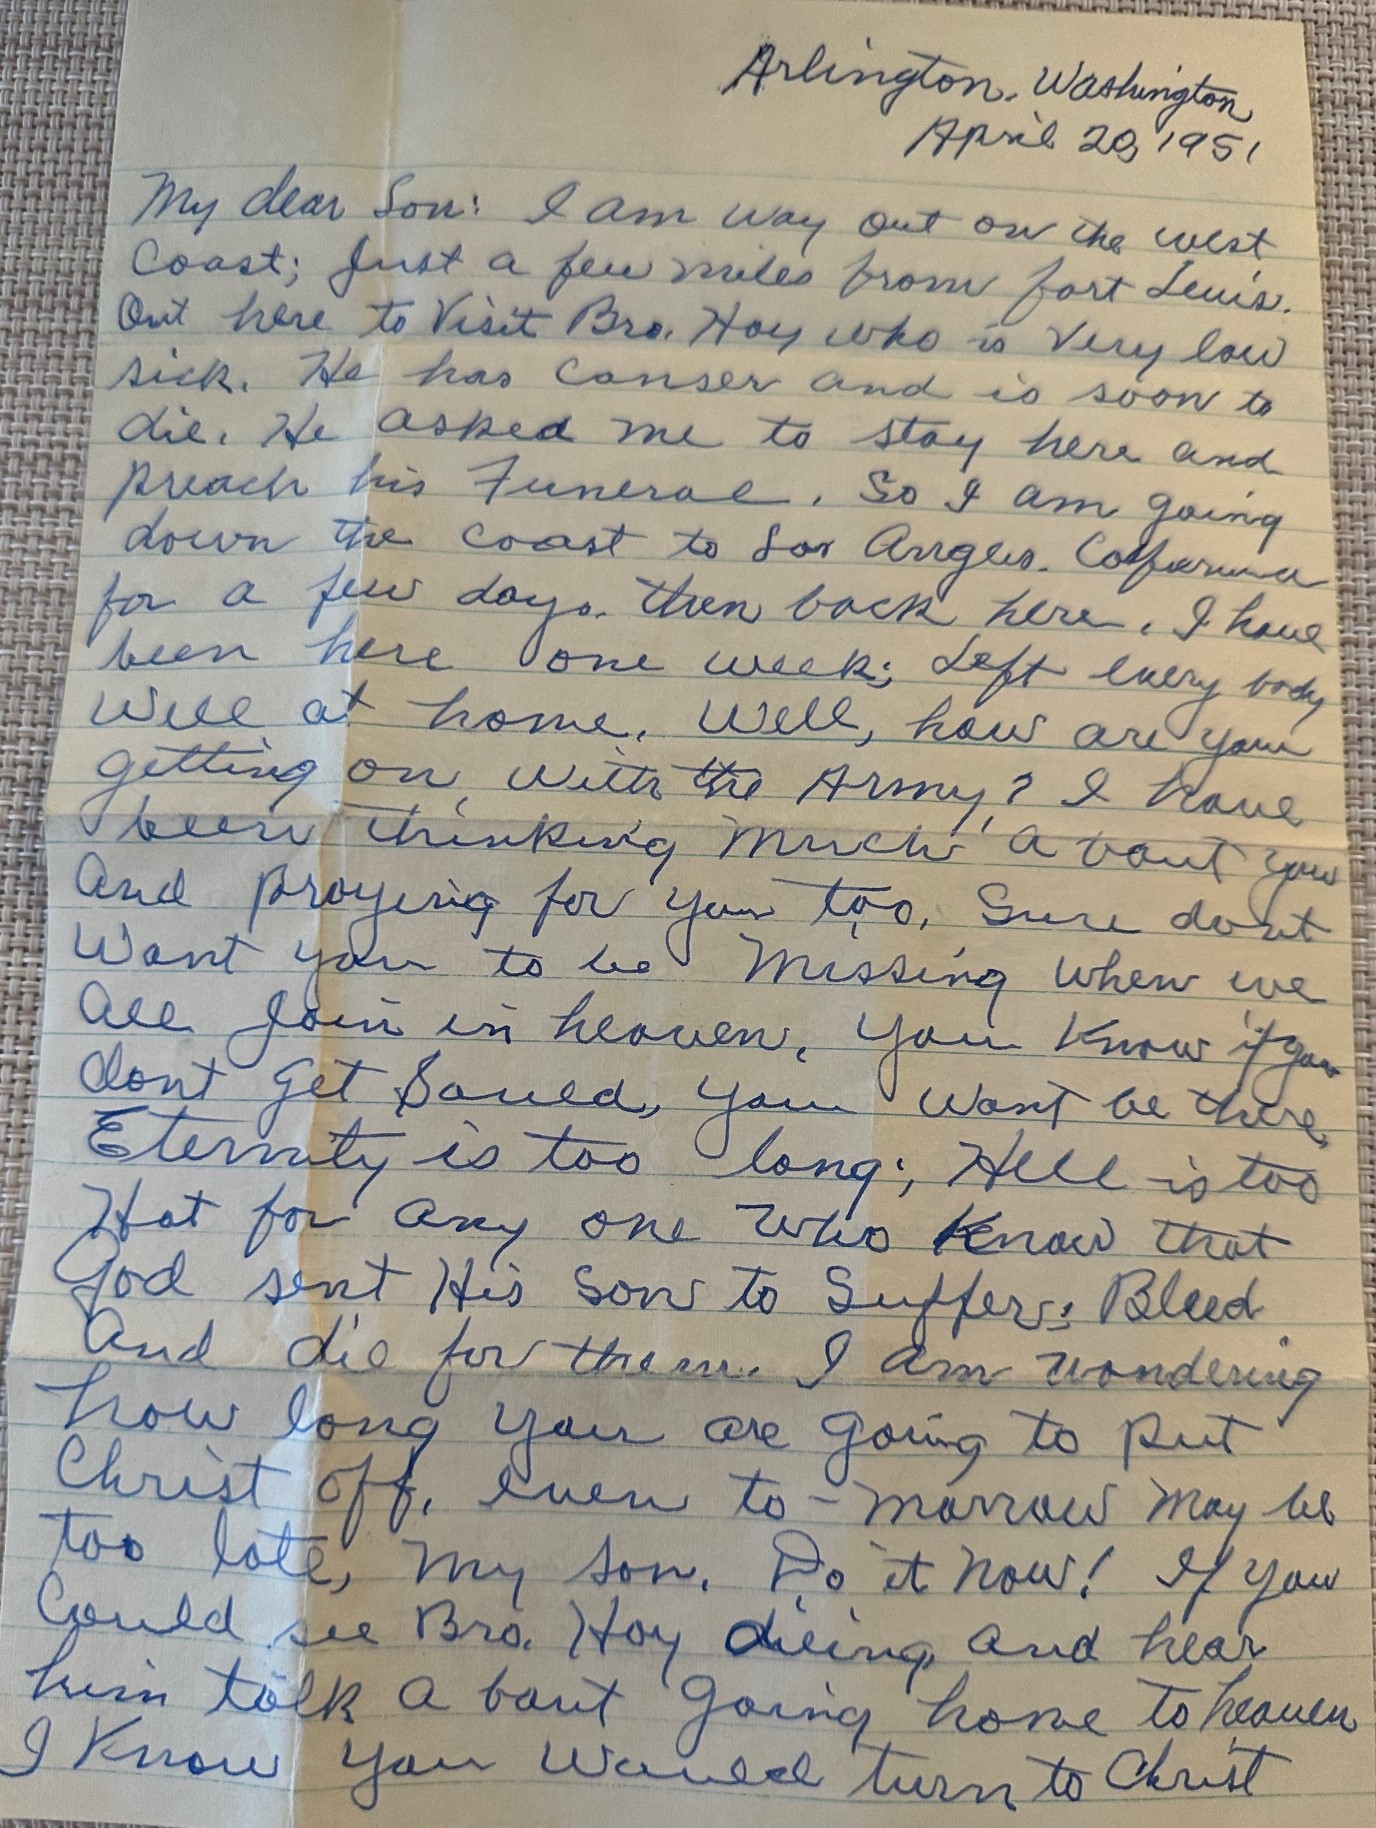 Arlington, Washington
April 20, 1951
My dear Son: I am way out on the west
Coast; Just a few miles from fort Lewis.
Out here to Visit Bro. Hoy who is Very low
sick. He has Canser and is soon to
die. He asked me to stay here and
preach his Funeral. So I am going
down the coast to Los Angles. California
for a few days. then back here. I have
been here one week; Left every body
Well at home. Well, how are you
getting on with the Army? I have
been thinking Much a bout you
And praying for you too. Sure dont
Want you to be Missing when we
all Join in heaven. You Know if you
dont get Saved, you Wont be there,
Eternity is too long; Hell is too
Hot for any one Who Know that
God sent His Son to Suffer; Bleed
And die for them. I am wondering
how long you are going to put
Christ off. Even to-morrow May be
too late, My Son. Do it Now! If you
Could see Bro. Hoy dieing and hear
him talk a bout going home to heaven
I Know you Would turn to Christ